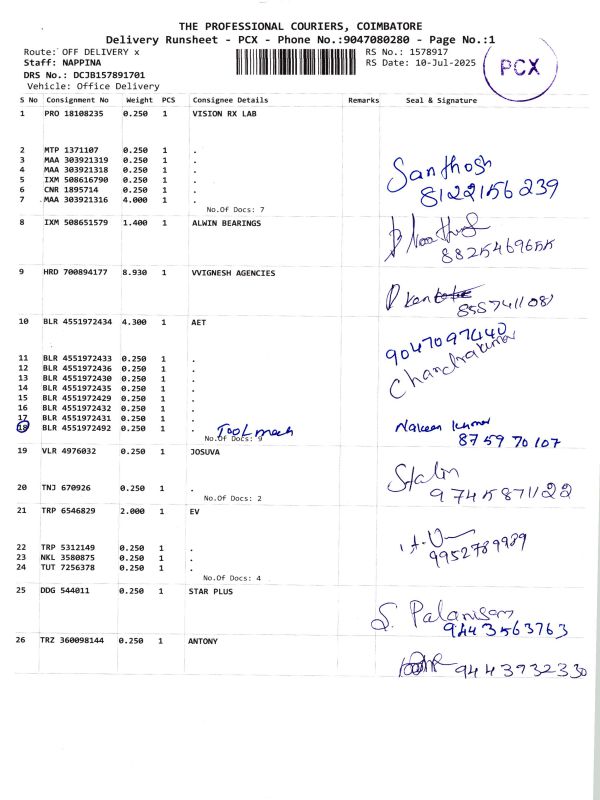 THE PROFESSIONAL COURIERS, COIMBATORE
Delivery Runsheet - PCX - Phone No.:9047080280 - Page No.:1
Route: OFF DELIVERY x
RS No.: 1578917
Staff: NAPPINA
RS Date: 10-Jul-2025
PCX
DRS No.: DCJB157891701
Vehicle: Office Delivery
S No Consignment No Weight PCS Consignee Details Remarks Seal & Signature
1 PRO 18108235 0.250 1 VISION RX LAB
2 MTP 1371107 0.250 1 .
3 MAA 303921319 0.250 1 .
4 MAA 303921318 0.250 1 .
5 IXM 508616790 0.250 1 .
6 CNR 1895714 0.250 1 .
7 MAA 303921316 4.000 1 .
Santhosh
8122156239
No.Of Docs: 7
8 IXM 508651579 1.400 1 ALWIN BEARINGS
8825469655
9 HRD 700894177 8.930 1 VVIGNESH AGENCIES
10 BLR 4551972434 4.300 1 AET
9047097440
Chandrakumar
11 BLR 4551972433 0.250 1 .
12 BLR 4551972436 0.250 1 .
13 BLR 4551972430 0.250 1 .
14 BLR 4551972435 0.250 1 .
15 BLR 4551972429 0.250 1 .
16 BLR 4551972432 0.250 1 .
17 BLR 4551972431 0.250 1 .
18 BLR 4551972492 0.250 1 . Tool mech
Naveen Kumar
875970107
No.Of Docs: 9
19 VLR 4976032 0.250 1 JOSUVA
Stalin
9745871122
20 TNJ 670926 0.250 1 .
No.Of Docs: 2
21 TRP 6546829 2.000 1 EV
9952789989
22 TRP 5312149 0.250 1 .
23 NKL 3580875 0.250 1 .
24 TUT 7256378 0.250 1 .
No.Of Docs: 4
25 DDG 544011 0.250 1 STAR PLUS
S. Palanisam
9443563763
26 TRZ 360098144 0.250 1 ANTONY
9443932330